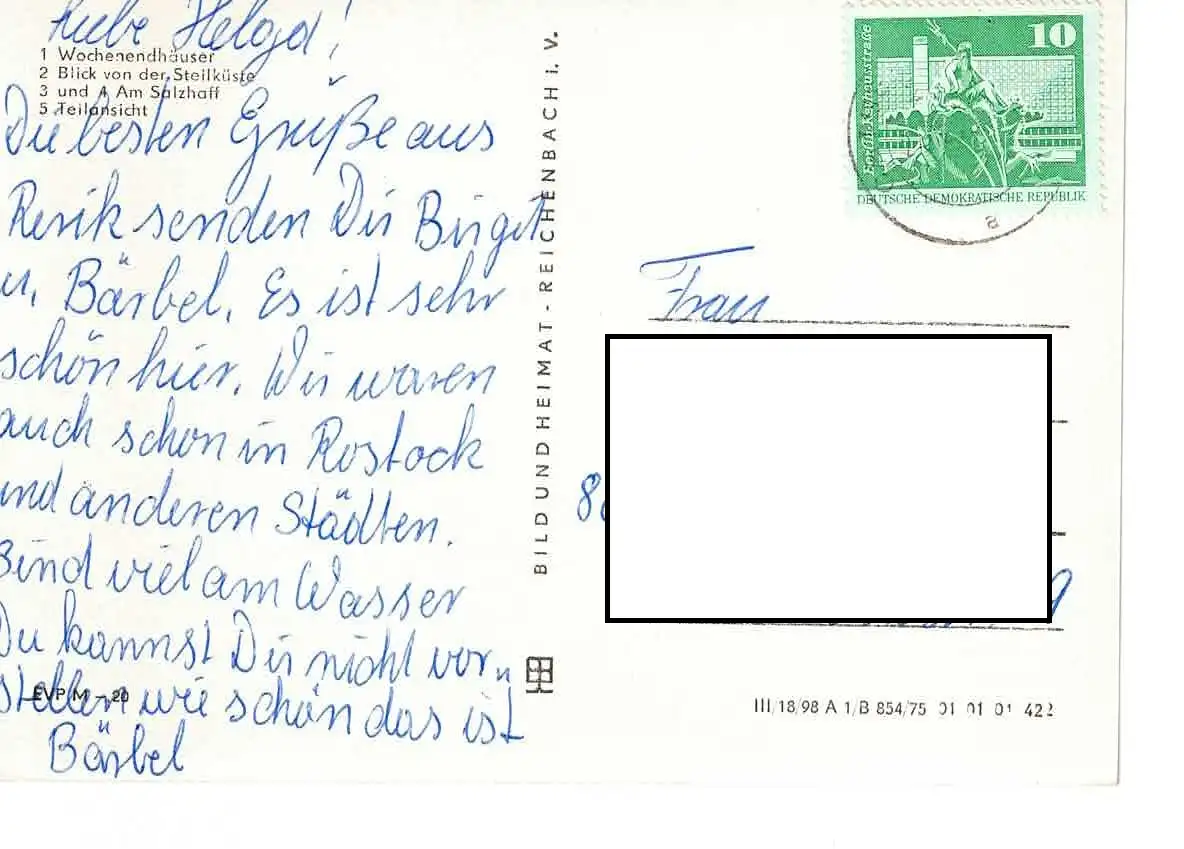 Liebe Helga!
1 Wochenendhäuser
2 Blick von der Steilküste
3 und 4 Am Salzhaff
5 Teilansicht
Die besten Grüße aus
Rerik senden Dir Birgit
u. Bärbel. Es ist sehr
schön hier. Wir waren
auch schon in Rostock
und anderen Städten.
Sind viel am Wasser
Du kannst Dir nicht vor-
stellen wie schön das ist
EVP M –,20
Bärbel
BILD UND HEIMAT - REICHENBACH i. V.
10
DEUTSCHE DEMOKRATISCHE REPUBLIK
a
Frau
III/18/98 A 1/B 854/75 01 01 01 422